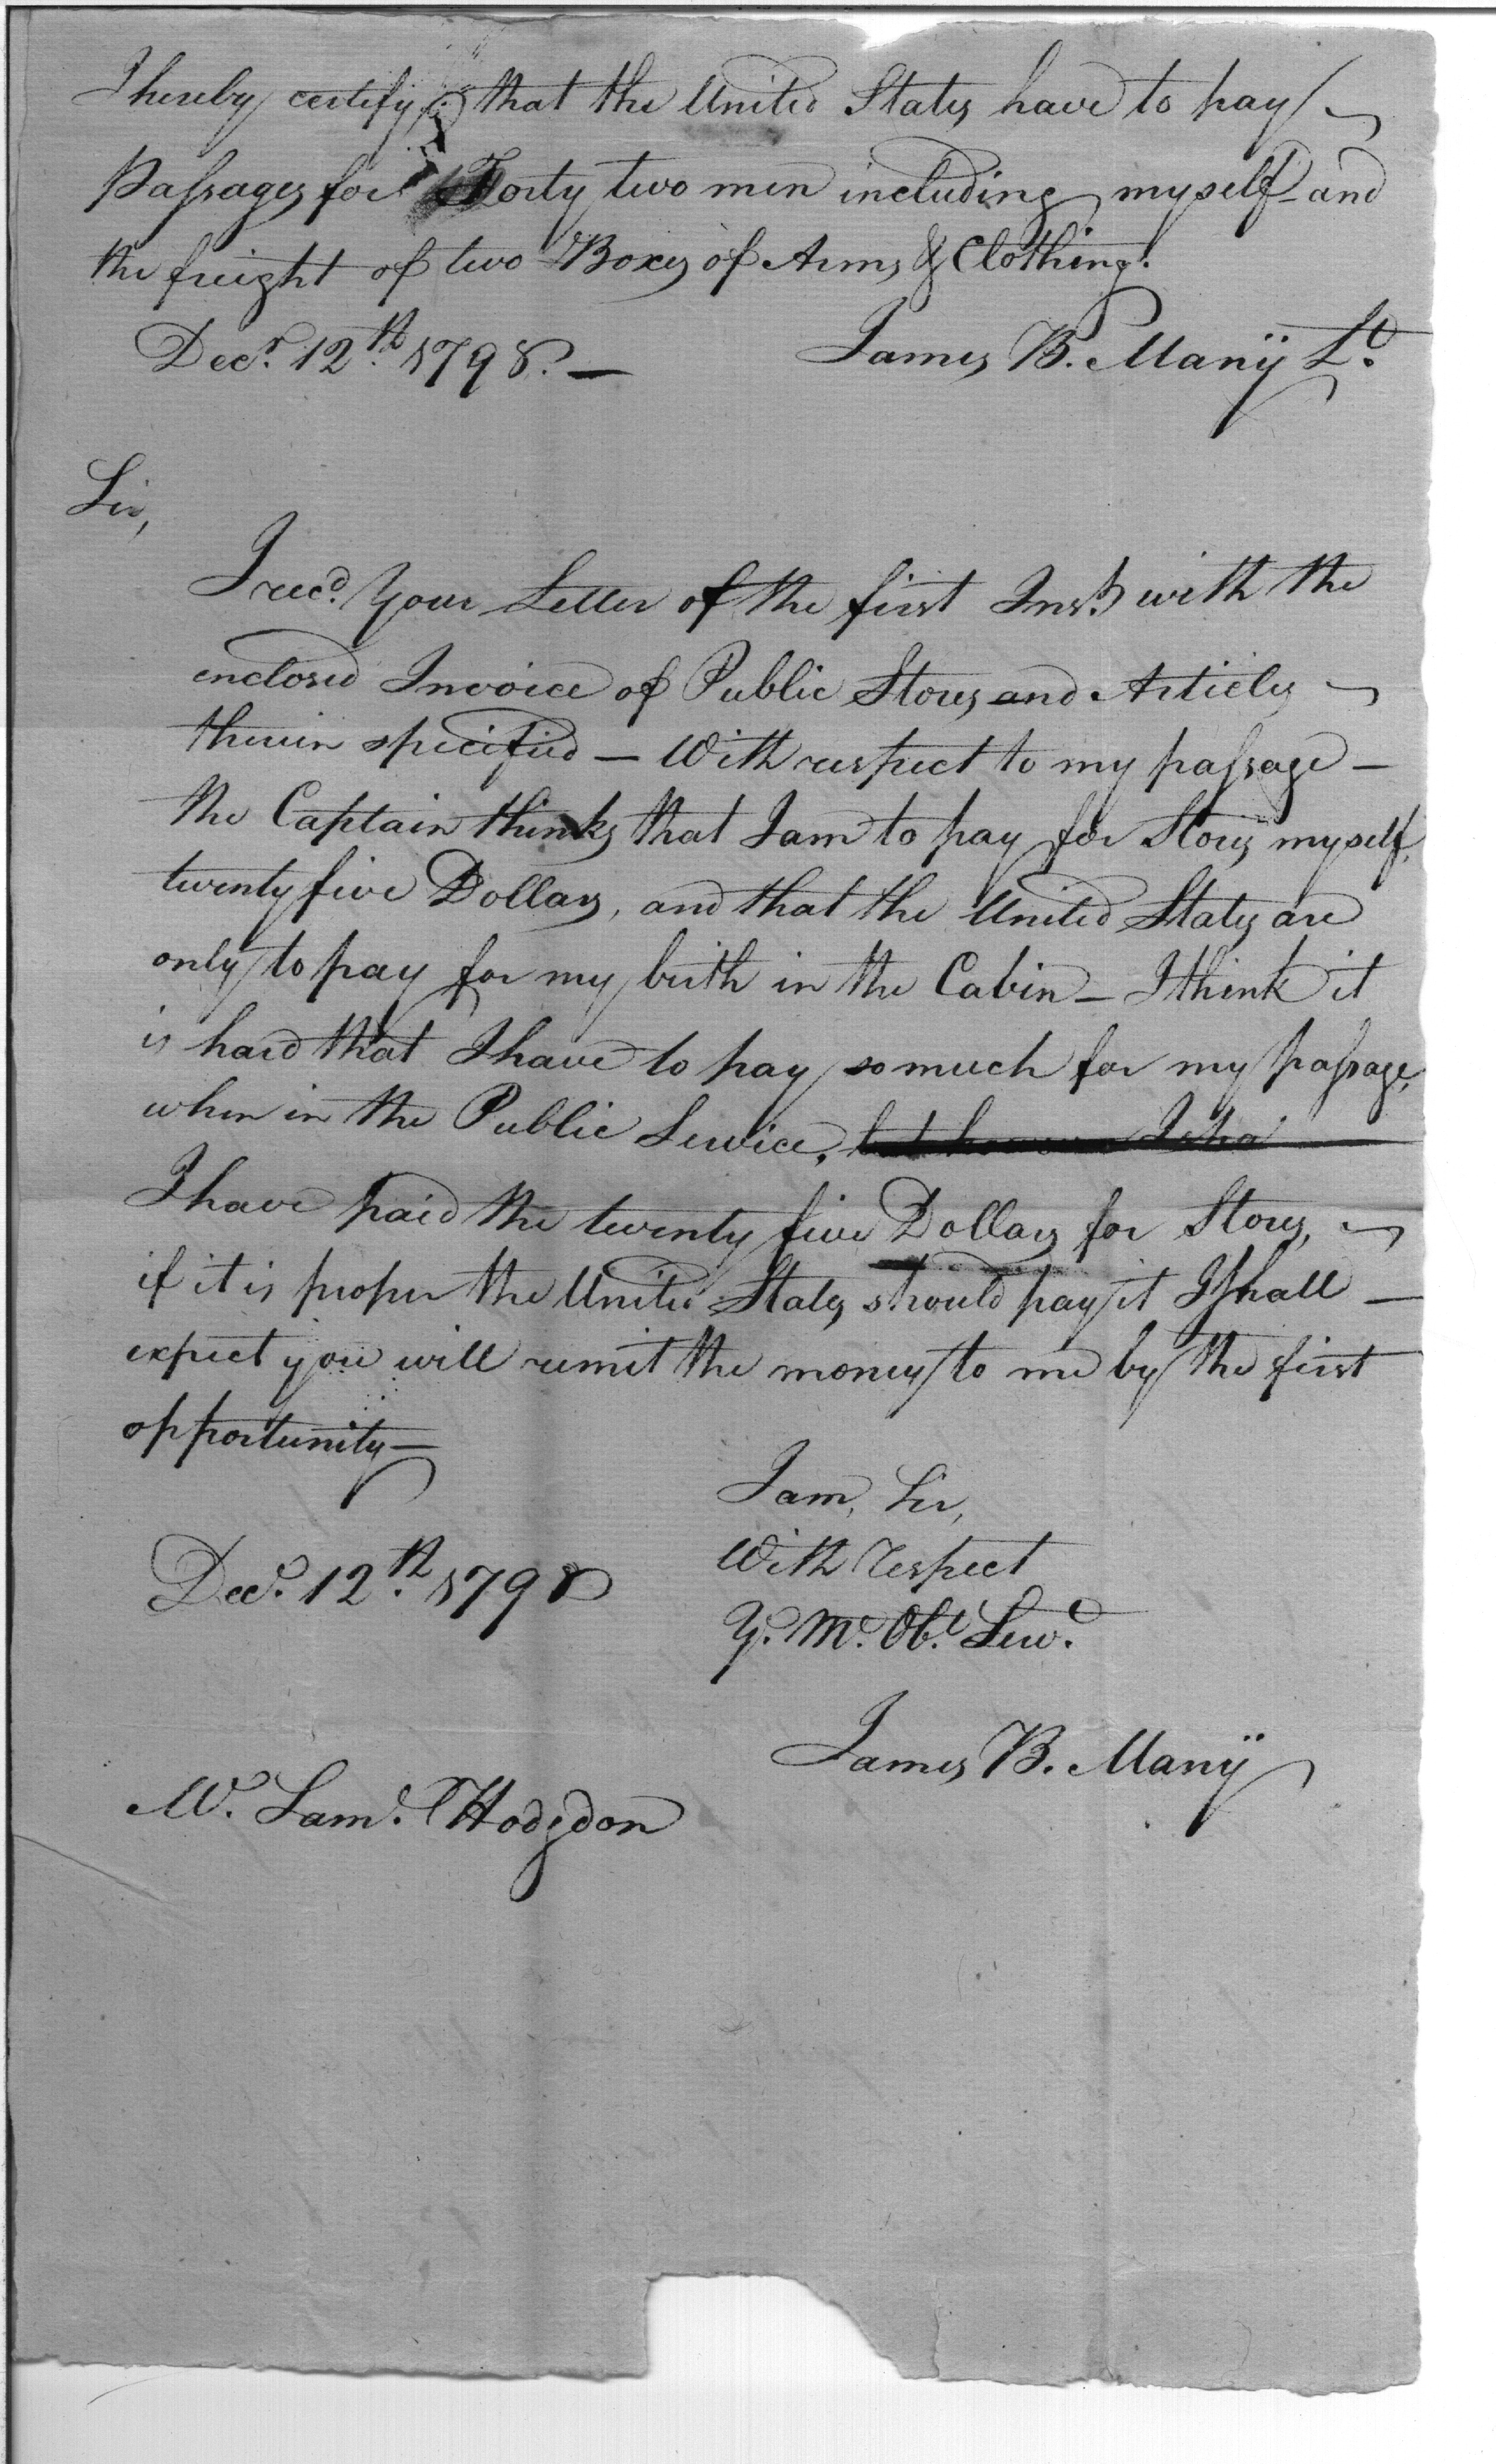 I hereby certify that the United States have to pay
Passages for Forty two men including myself and
the freight of two Boxes of Arms & Clothing.
Decr. 12th. 1798. —
James B. Manÿ Lt.
Sir,
I recd. Your Letter of the first Inst. with the
enclosed Invoice of Public Stores and Articles
therein specified — With respect to my passage —
the Captain thinks that I am to pay for Stores myself,
twenty five Dollars, and that the United States are
only to pay for my birth in the Cabin — I think it
is hard that I have to pay so much for my passage,
when in the Public Service,
I have paid the twenty five Dollars for Stores,
if it is proper the United States should pay it I shall —
expect you will remit the money to me by the first
opportunity —
I am, Sir,
With respect
Decr. 12th. 1798
Y. M. Obt. Servt.
James B. Manÿ
Mr. Saml. Hodgdon